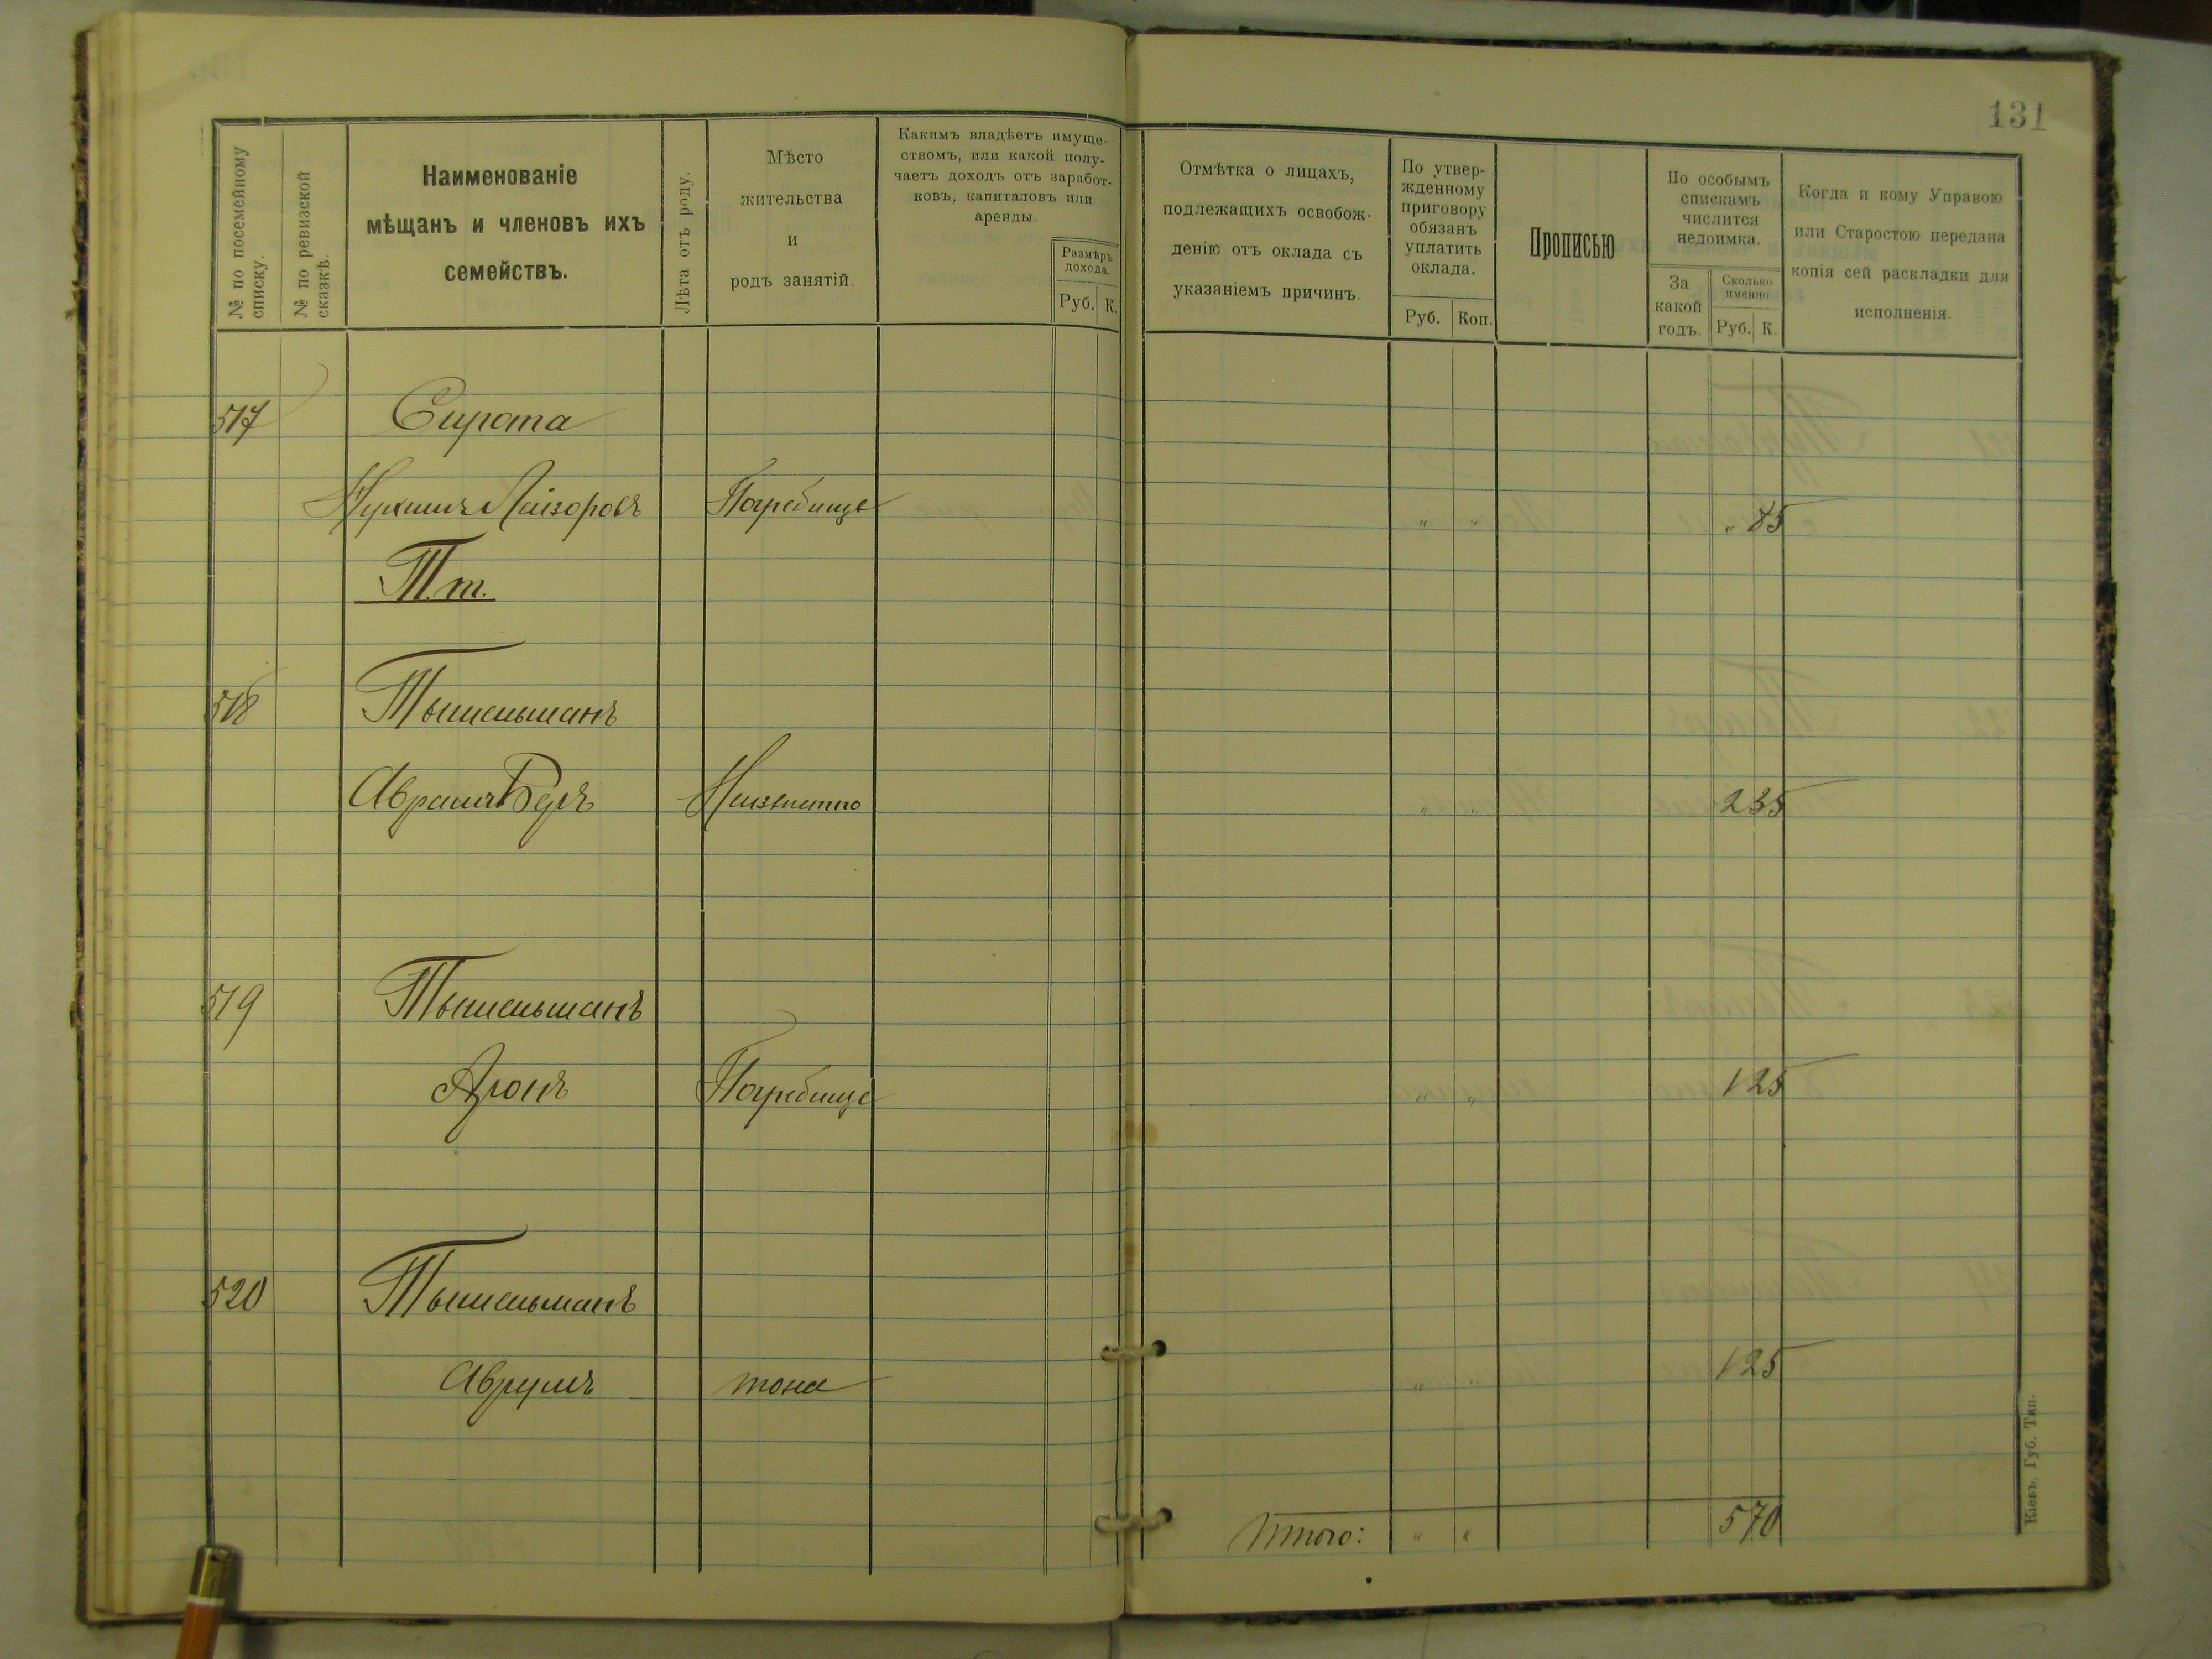 131
№ по посемейному списку.
№ по ревизской сказкѣ.
Наименованіе
мѣщанъ и членовъ ихъ
семействъ.
Лѣта отъ роду.
Мѣсто
жительства
и
родъ занятій.
Какимъ владѣетъ имуще-
ствомъ, или какой полу-
чаетъ доходъ отъ заработ-
ковъ, капиталовъ или
аренды.
Размѣръ
дохода.
Руб. К.
Отмѣтка о лицахъ,
подлежащихъ освобож-
денію отъ оклада съ
указаніемъ причинъ.
По утвер-
жденному
приговору
обязанъ
уплатить
оклада.
Руб. Коп.
Прописью
По особымъ
спискамъ
числится
недоимка.
За
какой
годъ.
Сколько
именно
Руб. К.
Когда и кому Управою
или Старостою передана
копія сей раскладки для
исполненія.
517 Сирота
Погребище " " " 85
Т.т.
518 Тышельманъ
Аврамъ Беръ 2 35
519 Тышельманъ
Аронъ Погребище " " 1 25
520 Тышельманъ
Аврумъ тоже " " 1 25
Итого: " " 5 70
Кіевъ, Губ. Тип.